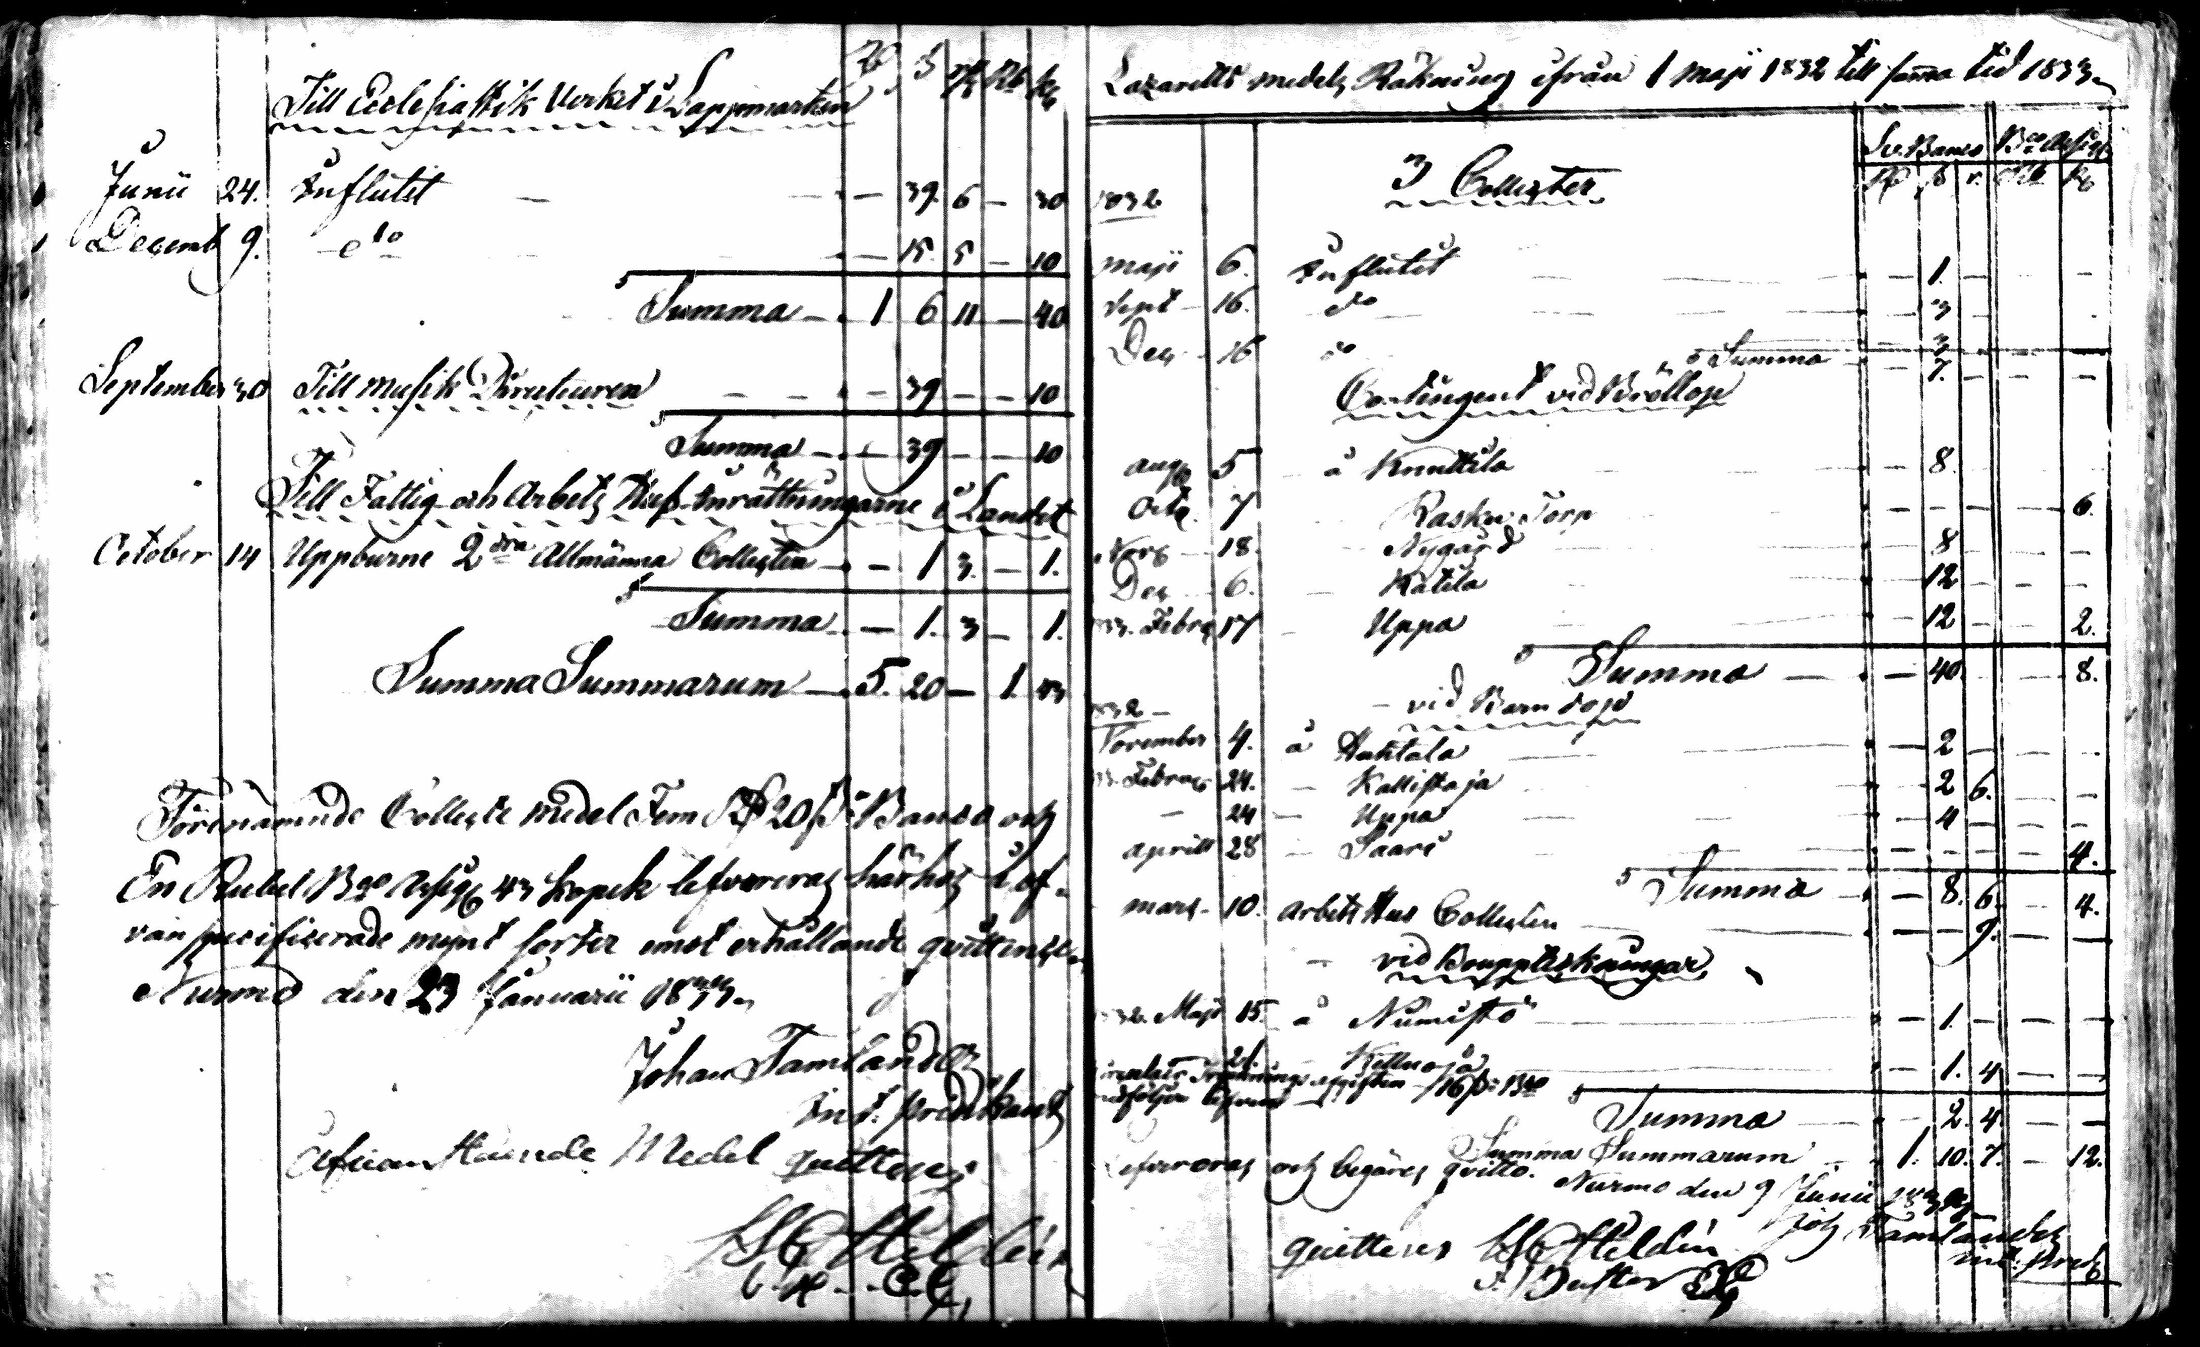 Till Ecclesiastik Verket i Lappmarken
Junii 24. Influtit — — 39. 6 — 30
Decemb 9. — do — — 15. 5 — 10
Summa — 1 6 11 — 40
September 30 Till Musik Directeuren — — 39 — — 10
Summa — — 39 — — 10
Till Fattig och Arbets Hus Inrättningarne i Landet
October 14 Uppburne 2dra Allmänna Collecten — — 1 3. — 1.
Summa — — 1. 3 — 1.
Summa Summarum — 5. 20 — 1. 43
Förenämnde Collecte medel Fem Rd 20 s. Banco och
En Rubel Bco Assig 43 kopek lefvereras härhos i of-
van specificerade mynt sorter emot erhållande qvittence
Nurmo den 23 Januarii 1833.
Johan Tamlander
Ofvanstående Medel quitteras
Lazaretts medels Räkning ifrån 1 Maji 1832 till samma tid 1833
Sv. Banco Bco Assig
1832 3 Collecter
Maji 6. Influtit — 1. — —
Sept 16. do — 3 —
Dec 16 do — 3
Summa — 7. — —
Contingent vid Bröllop
Aug 5 å Knuttila — 8.
Octb. 7 Rasku Torp — — — 6.
Novb 18. Nygård — 8 — —
Dec 6. Katila — 12 — —
33. Febr 17 Uppa — 12 — 2.
Summa — 40. — 8.
1832 — vid Barndop
November 4. å Huhtala — 2 —
33. Februa 24. — Kallistaja — 2 6. —
— 24 — Uppa — 4 — —
Aprill 28 — Saari — — — 4.
Summa — 8. 6. — 4.
Mars 10. Arbets Hus Collecten — — 9. —
vid Bouppteckningar
1832. Maji 15. å Nurmisto — 1. — —
21. — — 1. 4 —
Summa — 2. 4. — —
Summa Summarum — 1. 10. 7. — 12.
Lefvereras och begäres qvitto. Nurmo den 9 Junii 1833
Joh Tamlander
quitteras